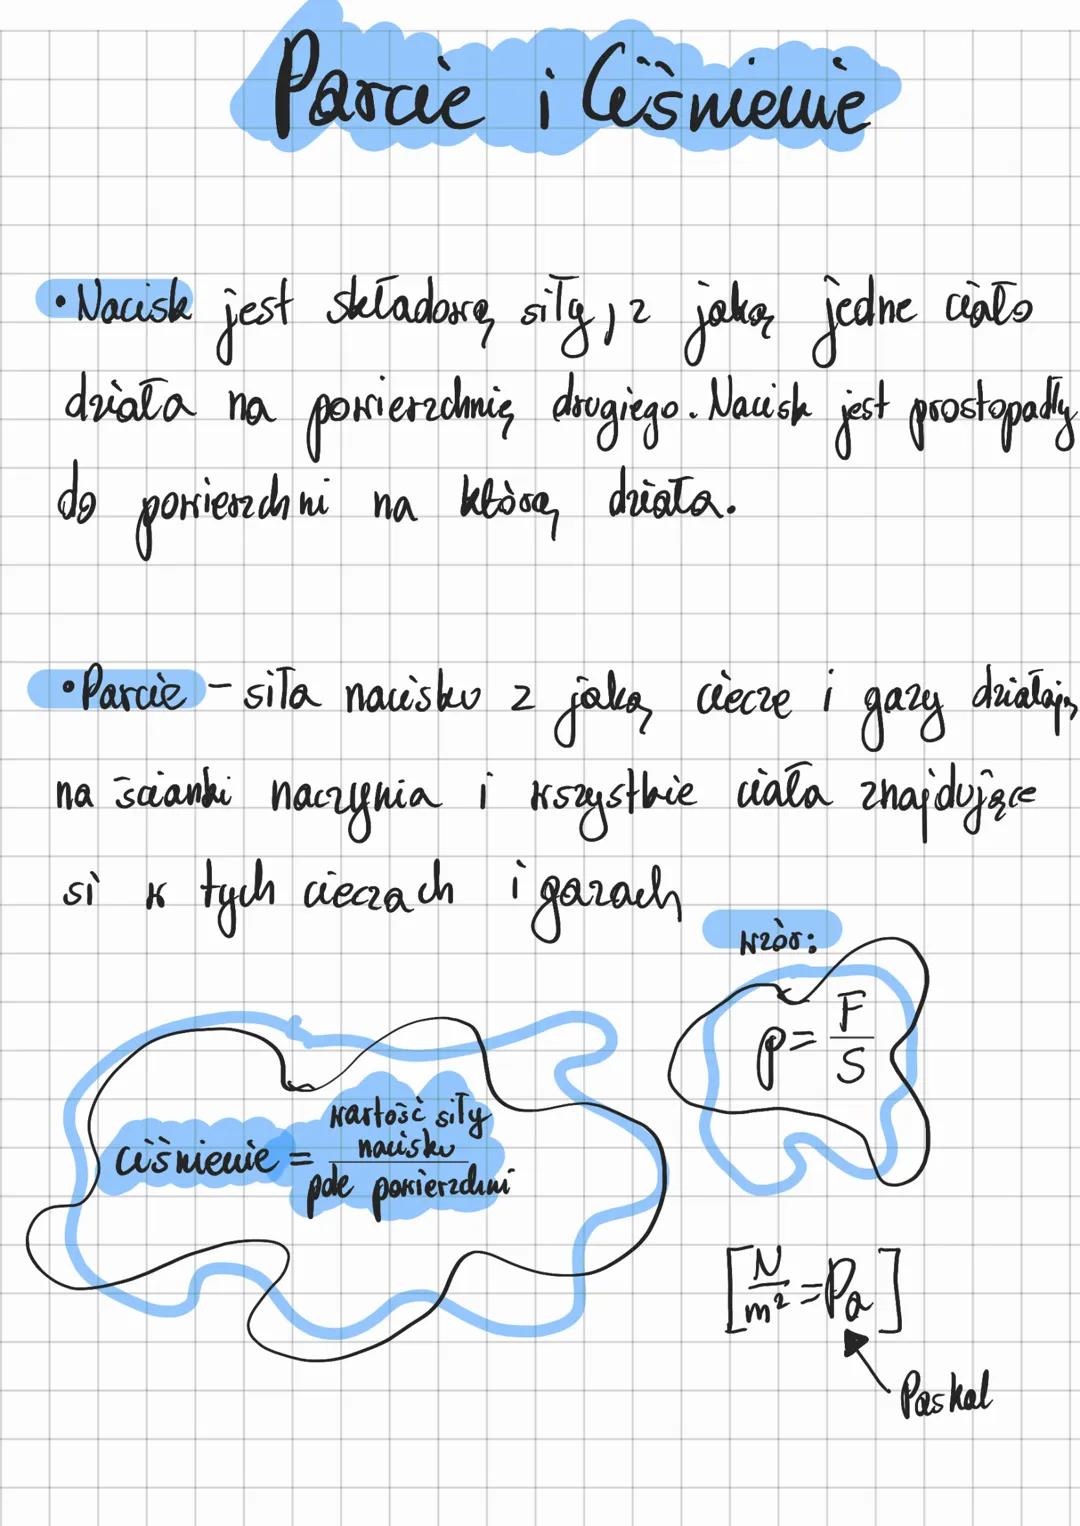 Parcie i Ciśnienie
• Nacisk jest składową siły, z jaką jedne ciało
działa na powierzchnię drugiego. Nacisk jest prostopadły
do powierzchni na którą działa.
• Parcie – siła nacisku z jaką ciecze i gazy działają
na ścianki naczynia i wszystkie ciała znajdujące
si w tych cieczach i gazach
wzór:
p = F/S
ciśnienie = wartość siły nacisku / pole powierzchni
[N/m² = Pa]
Paskal